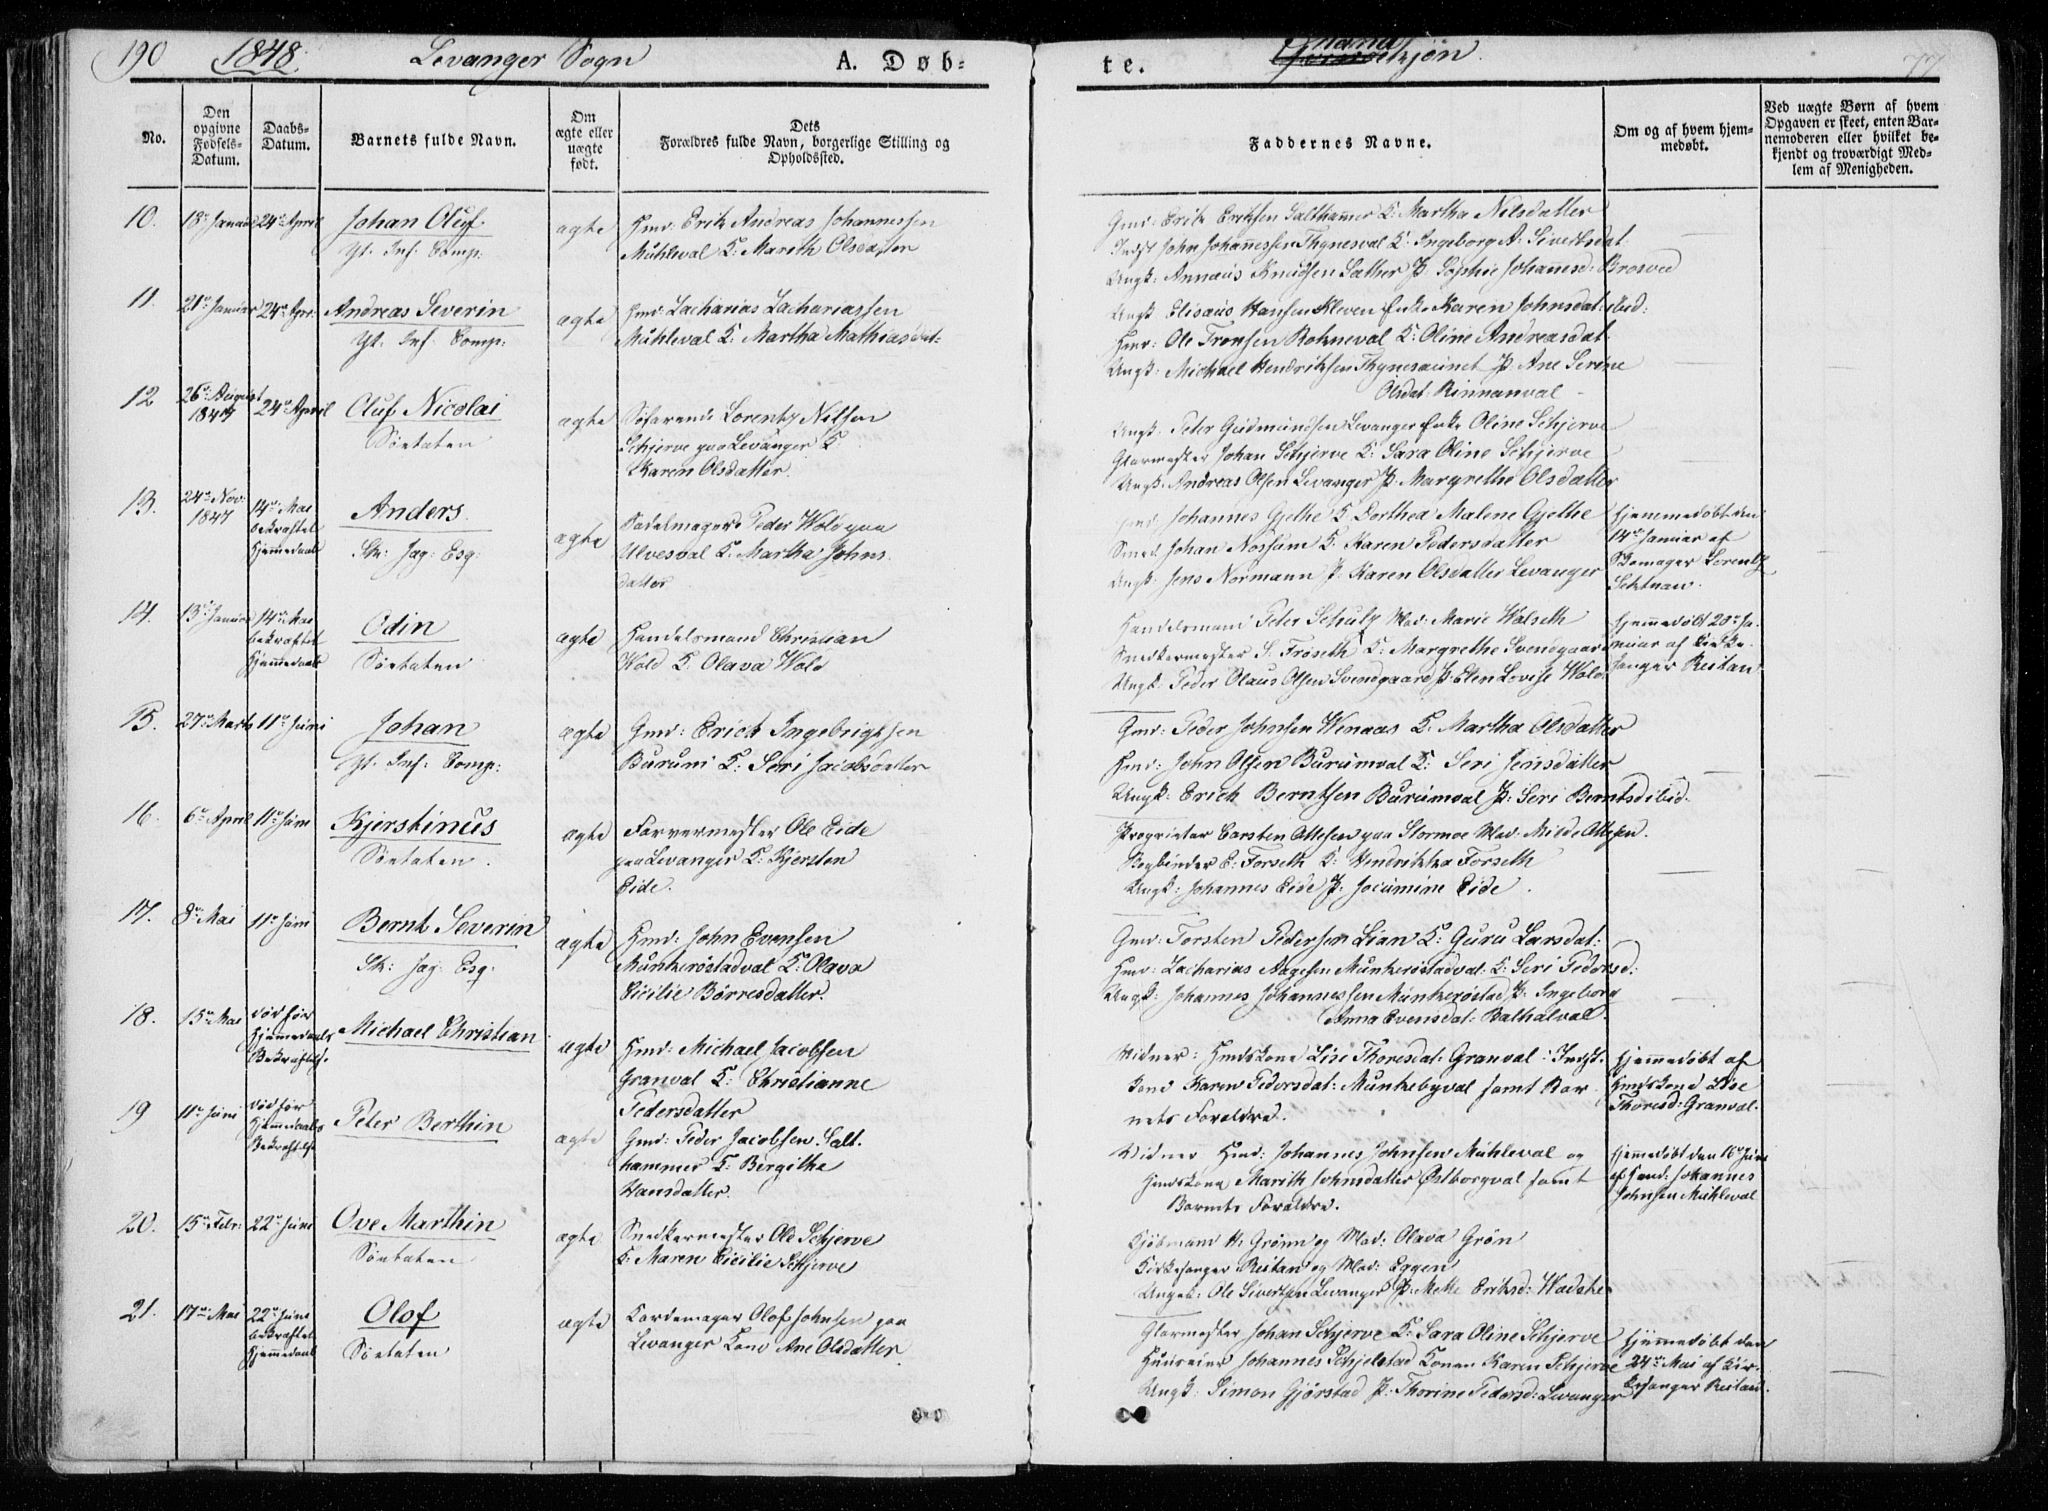 190 1848. Levanger Sogn A. Døb-
te. Mandkjøn. 77
No.
Den opgivne Fødsels-Datum.
Daabs-Datum.
Barnets fulde Navn.
Om ægte eller uægte født.
Dets Forældres fulde Navn, borgerlige Stilling og Opholdssted.
Faddernes Navne.
Om og af hvem hjemmedøbt.
Ved uægte Børn af hvem Opgaven er skeet, enten Barnemoderen eller hvilket bekjendt og troværdigt Medlem af Menigheden.
10. 18de Januar 24de April Johan Oluf
Yt. Inf. Comp:
ægte
Hmd: Erik Andreas Johannessen
Mühleval K: Marith Olsdatter
Gmd: Erik Eriksen Salthammer K: Martha Nilsdatter
Indst John Johannessen Thynesval K: Ingeborg A: Sivertsdat:
Ungk: Annæus Knudsen Sæther P. Sophie Johannesd: Brosved
11. 21de Januar 24de Apr: Andreas Severin
Yt. Inf. Comp:
ægte
Hmd: Zacharias Zachariassen
Mühleval K: Martha Mathiasdat:
Ungk: Elisæus Hansen Kleven Enke Karen Johnsdat: ibid:
Hmd: Ole Tronsen Rohneval K: Oline Andreasdat.
Ungk: Michael Hendriksen Thynesaunet P. Ane Serine
Olsdat: Rinnanval
12 26de August 1847 24de April Oluf Nicolai
Søetaten
ægte
Søfarende Lorentz Nilsen
Schjerve paa Levanger K
Karen Olsdatter.
Ungk. Peter Gudmundsen Levanger Enke Oline Schjerve
Glarmester Johan Schjerve K: Sara Oline Schjerve
Ungk: Andreas Olsen Levanger P. Margrethe Olsdatter
13. 24de Nov: 1847 14de Mai bekræftet Hjemmedaab Anders.
Sk: Jag: Esq:
ægte
Sadelmager Peder Wold paa
Ulvesval K. Martha Johns
datter
Johannes Gjethe K Dorthea Malene Gjethe
Smed Johan Nossum K. Karen Pedersdatter
Ungk: Jens Normann P. Karen Olsdatter Levanger
Hjemmedøbt den
14de Januar af
Lorentz
14. 13de Januar 14de Mai bekræftet Hjemmedaab Odin
Søetaten
ægte
Handelsmand Christian
Wold K. Olava Wold
Handelsmand Peter Schulz Mad: Marie Walseth
Snedkermester S. Frøseth K: Margrethe Svendgaard
Ungk: Peder Olaus Olsen Svendgaard P: Elen Lovise Wold
Hjemmedøbt 20de Ja-
nuar af Kirke-
sanger Reitan
15. 27de Marts 11te Juni Johan
Yt. Inf: Comp:
ægte
Gmd: Erick Ingebrigtsen
Burum K: Seri Jacobsdatter
Gmd: Peder Johnsen Wenaas K. Martha Olsdatter
Hmd: John Olsen Burumval K: Seri Jensdatter
Ungk: Erick Berntsen Burumval P: Seri Berntsd: ibid.
16. 6te April 11te Juni Kjerstinus
Søetaten.
ægte
Farvermester Ole Eide
paa Levanger K: Kjersten
Eide.
Proprietær Carsten Ottesen paa Stormoe Mad: Milde Ottesen.
Bogbinder E: Forseth K: Hendrikka Forseth
Ungk: Johannes Eide P: Jocumine Eide.
17. 8de Mai 11te Juni Bernt Severin
Sk: Jag: Esq:
ægte
Hmd: John Evensen
Munkerøstadval K: Olava
Cicilie Børresdatter.
Gmd: Torsten Pedersen Lian K: Guru Larsdat:
Hmd: Zacharias Aagesen Munkerøstadval K: Seri Pedersd:
Ungk: Johannes Johannessen Munkerøstad P: Ingeborg
Anna Evensdat: Balhalval.
18. 15de Mai død før Hjemmedaabs Bekræftelse Michael Christian
ægte
Hmd: Michael Jacobsen
Granval K: Christianne
Pedersdatter
Vidner: Hmdskone Lise Thoresdat: Granval: Indst.
kone Karen Pedersdat: Munkebyval samt Bar
nets Forældre.
Hjemmedøbt af
Hmdskone Lise
Thoresd: Granval.
19 11te Juni død før Hjemmedaabs Bekræftelse Peter Berthin
ægte
Gmd: Peder Jacobsen Salt
hammer K: Birgithe
Hansdatter.
Vidner Hmd: Johannes Johnsen Mühleval og
Hmdskone Marith Johnsdatter Østborgval samt
Barnets Forældre.
Hjemmedøbt den 16de Juni
af Johannes
Johnsen Mühleval
20. 15de Febr: 22de Juni Ove Marthin
Søetaten
ægte
Snedkermester Ole Schjerve
K: Maren Cicilie Schjerve
Kjøbmand H. Grønn og Mad: Olava Grøn
Kirkesanger Reitan og Mad: Eggen
Ungk: Ole Sivertsen Levanger P: Mette Eriksd:
21. 17de Mai 22de Juni bekræftet Hjemmedaab Olof
Søetaten
ægte
Kardemager Olof Johnsen paa
Levanger Kone Ane Olsdatter.
Glarmester Johan Schjerve K: Sara Oline Schjerve
Johannes Schjelstad Konen Karen Schjerve
Ungk: Simon Gjørstad P: Thorine Pedersd: Levanger
Hjemmedøbt den
24de Mai af Kir-
kesanger Reitan.